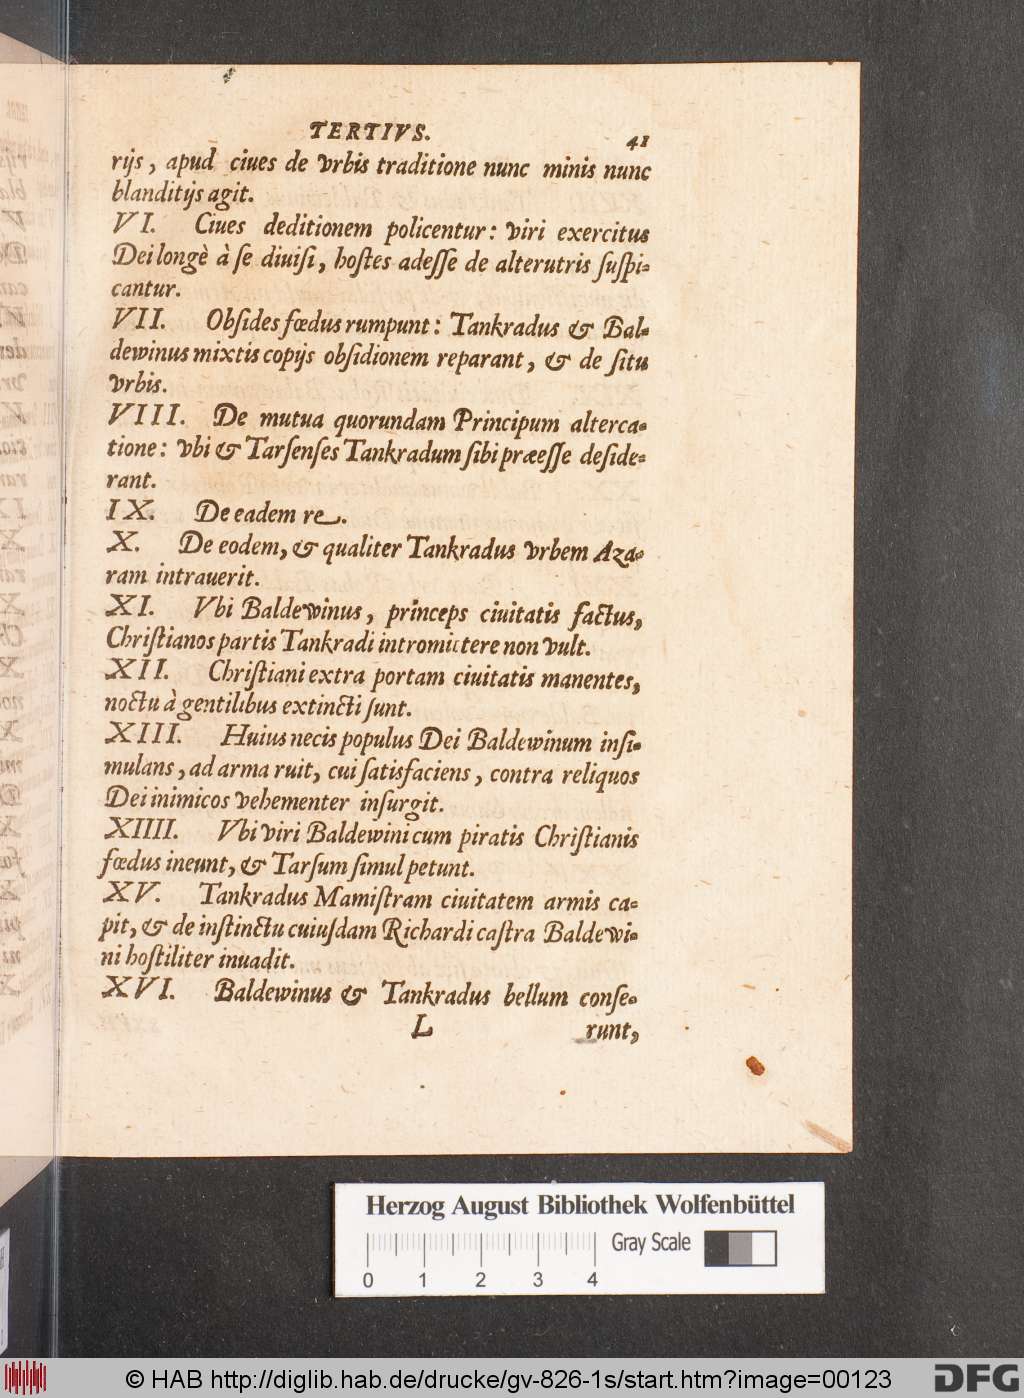 TERTIVS. 41
rijs, apud ciues de vrbis traditione nunc minis nunc
blanditijs agit.
VI. Ciues deditionem policentur: viri exercitus
Dei longè à se diuisi, hostes adesse de alterutris suspi-
cantur.
VII. Obsides fœdus rumpunt: Tankradus & Bal-
dewinus mixtis copijs obsidionem reparant, & de situ
vrbis.
VIII. De mutua quorundam Principum alterca-
tione: vbi & Tarsenses Tankradum sibi præesse deside-
rant.
IX. De eadem re.
X. De eodem, & qualiter Tankradus vrbem Aza-
ram intrauerit.
XI. Vbi Baldewinus, princeps ciuitatis factus,
Christianos partis Tankradi intromittere non vult.
XII. Christiani extra portam ciuitatis manentes,
noctu à gentilibus extincti sunt.
XIII. Huius necis populus Dei Baldewinum insi-
mulans, ad arma ruit, cui satisfaciens, contra reliquos
Dei inimicos vehementer insurgit.
XIIII. Vbi viri Baldewini cum piratis Christianis
fœdus ineunt, & Tarsum simul petunt.
XV. Tankradus Mamistram ciuitatem armis ca-
pit, & de instinctu cuiusdam Richardi castra Baldewi-
ni hostiliter inuadit.
XVI. Baldewinus & Tankradus bellum conse-
L runt,
Herzog August Bibliothek Wolfenbüttel
Gray Scale
0 1 2 3 4
© HAB http://diglib.hab.de/drucke/gv-826-1s/start.htm?image=00123
DFG